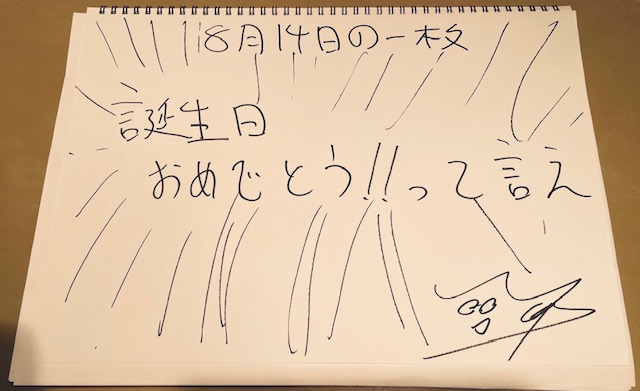 8月14日の一枚
誕生日
おめでとう!!って言え